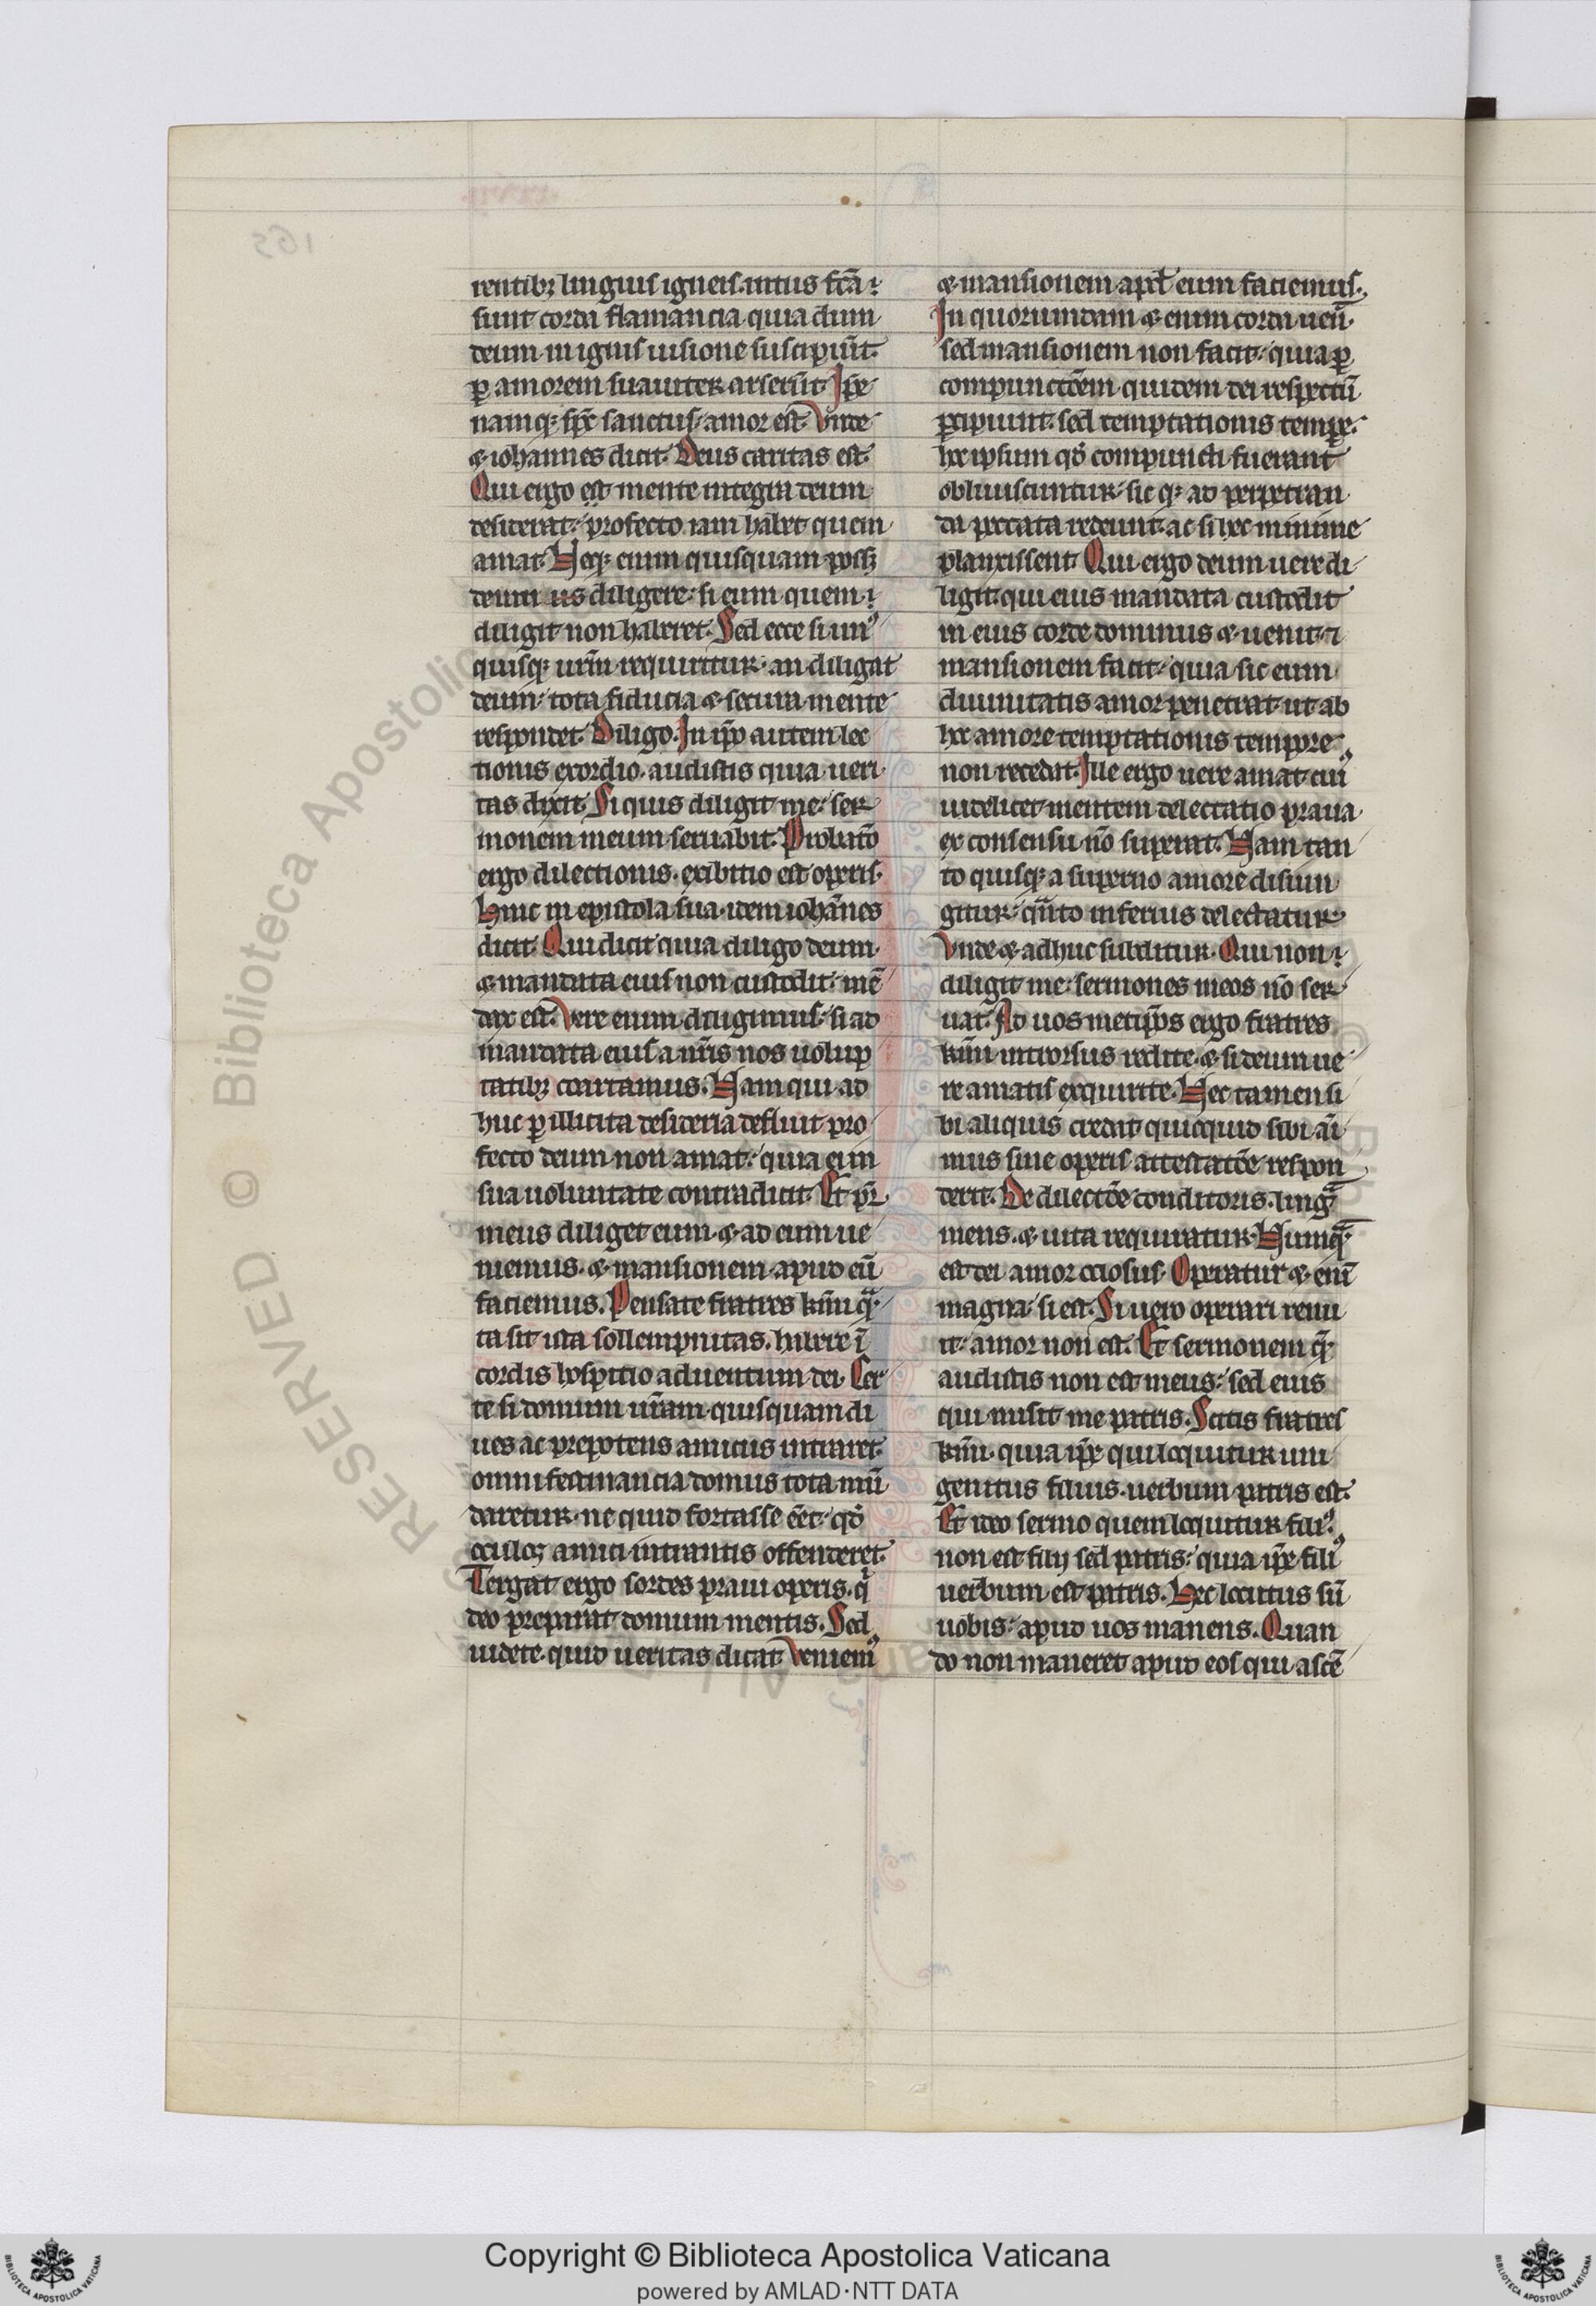 rentibꝫ linguis igneis. intus fc̃a
sunt corda flamancia. quia dum
deum in ignis uisione susciperũt.
ꝑ amorem suauiter arserũt. Ip̃e
namqꝫ sp̃c sanctus, amor est. Vnde
& iohannes dicit. Deus caritas est.
Qui ergo est mente integra deum
desiderat: profecto iam habet quem
amat. Neqꝫ enim quisquam possꝫ
deum diligere: si eum quem
diligit non haberet. Sed ecce si unꝰ
quisqꝫ ur̃m requiritur. an diligat
deum: tota fiducia & secura mente
respondet. Diligo. In ip̃o autem lec
tionis exordio. audistis quia ueri
tas dixit. Si quis diligit me: ser
monem meum seruabit. Probatõ
ergo dilectionis. exibitio est operis.
Hinc in epistola sua. idem iohãnes
dicit. Qui dicit quia diligo deum.
& mandata eius non custodit: mẽ
dax est. Vere enim diligimus: si ad
mandata eius a nr̃is nos uolup
tatibꝫ coartamus. Nam qui ad
huc ꝑ illicita desideria defluit pro
fecto deum non amat: quia ei in
sua uoluntate contradicit. Et pr̃
meus diliget eum. & ad eum ue
niemus. & mansionem apud eũ
faciemus. Pensate fratres kmi q̃
ta sit ista sollempnitas. habere ĩ
cordis hospitio aduentum dei. Cer
te si domum ur̃am quisquam di
ues ac prepotens amicus intraret.
omni festinancia domus tota mũ
daretur. ne quid fortasse eẽt. qd̾
oculos amici intrantis offenderet.
Tergat ergo sordes praui operis. q̾
deo preparat domum mentis. Sed
uidete. quid ueritas dicat. Veniemꝰ
& mansionem apud eum faciemus.
In quorumdam & enim corda uenĩ.
sed mansionem non facit: quia ꝑ
compunctõem quidem dei respectũ
ꝑcipiunt. sed temptationis tempe.
hoc ipsum qd̾ compuncti fuerant
obliuiscuntur: sic qꝫ ad perpetran
da peccata redeunt: ac si hec minime
planxissent. Qui ergo deum uere di
ligit. qui eius mandata custodit
in eius corde dominus & uenit. ⁊
mansionem facit: quia sic eum
diuinitatis amor penetrat. ut ab
hoc amore temptationis tempore
non recedat. Ille ergo uere amat cuiꝰ
uidelicet mentem delectatio praua
ex consensu nõ superat. Nam tan
to quisqꝫ a superno amore disiun
gitur: q̃nto inferius delectatur
Vnde & adhuc subditur. Qui non
diligit me: sermones meos nõ ser
uat. Ad uos metip̃os ergo fratres
kmi introrsus redite. & si deum ue
re amatis exquirite. Nec tamen si
bi aliquis credat quicquid sibi ai
mus sine operis attestatõe respon
derit. De dilectõe conditoris. lingᷓ
mens. & uita requiratur. Numqᷓ
est dei amor ociosus. Operatur & enĩ
magna: si est. Si uero operari renu
it: amor non est. Et sermonem q̃
audistis non est meus: sed eius
qui misit me patris. Scitis fratres
kmi. quia ip̃e qui loquitur uni
genitus filius. uerbum patris est.
Et ideo sermo quem loquitur filiꝰ
non est filij sed patris: quia ip̃e filiꝰ
uerbum est patris. Hec locutus sũ
uobis: apud uos manens. Quan
do non maneret apud eos qui ascẽ
165
RESERVED © Biblioteca Apostolic
Copyright © Biblioteca Apostolica Vaticana
powered by AMLAD·NTT DATA
BIBLIOTECA APOSTOLICA VATICANA
BIBLIOTECA APOSTOLICA VATICANA